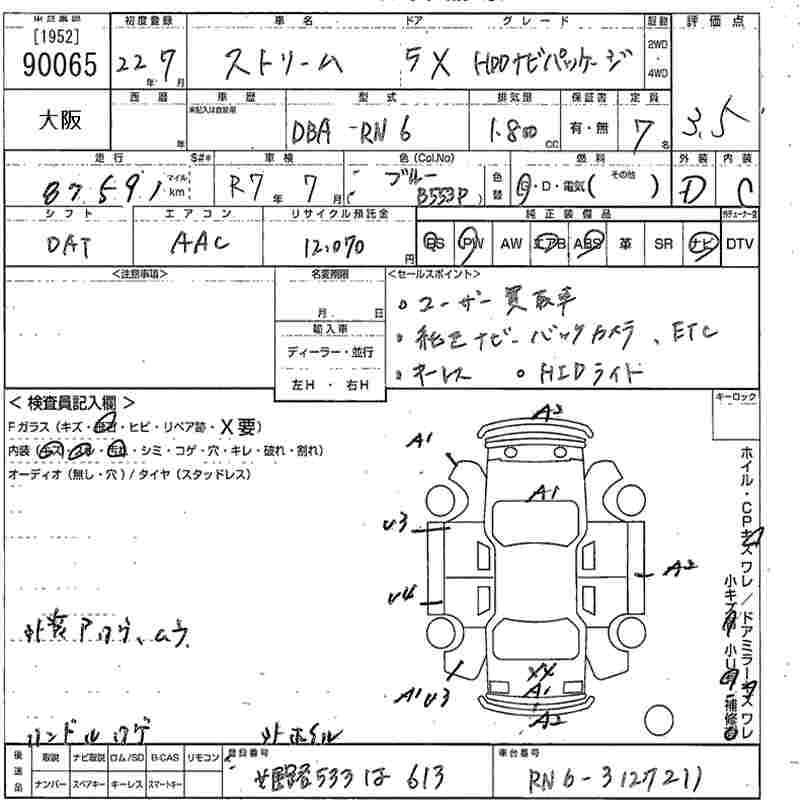 [1952]
初度登録 車名 ドア グレード 駆動 評価点
90065 22年 7月 ストリーム 5 X HDDナビパッケージ 2WD・4WD
大阪 西暦 年 車歴 未記入は自家用 型式 DBA-RN6 排気量 1.800CC 保証書 有・無 定員 7名 3.5
走行 S#* 車検 色(Col.No) 燃料 外装 内装
87,591 マイル km R7年 7月 ブルー B553P 色替 G・D・電気( その他 ) D C
シフト エアコン リサイクル預託金 純正装備品
DAT AAC 12,070円 PS PW AW エアB ABS 革 SR ナビ DTV
<注意事項> 名変期限 <セールスポイント>
月 日
輸入車
ディーラー・並行
左H・右H
。ユーザー買取車
・純正ナビ バックカメラ、ETC
・キーレス 。HIDライト
<検査員記入欄> キーロック
Fガラス(キズ・飛石・ヒビ・リペア跡・X要)
内装(キズ・スレ・汚れ・シミ・コゲ・穴・キレ・破れ・割れ)
オーディオ(無し・穴)/タイヤ(スタッドレス)
A2
A1
A1
U3
A2
U4
XX
A1 U3 A1
A2
ホイル・CPキズワレ/ドアミラーキズワレ
外装アロゲ、ムラ
ハンドルハゲ 外ホイル
後送品 取説 ナビ取説 ロム/SD B-CAS リモコン 登録番号 車台番号
ナンバー スペアキー キーレス スマートキー 533 は 613 RN6-3127211